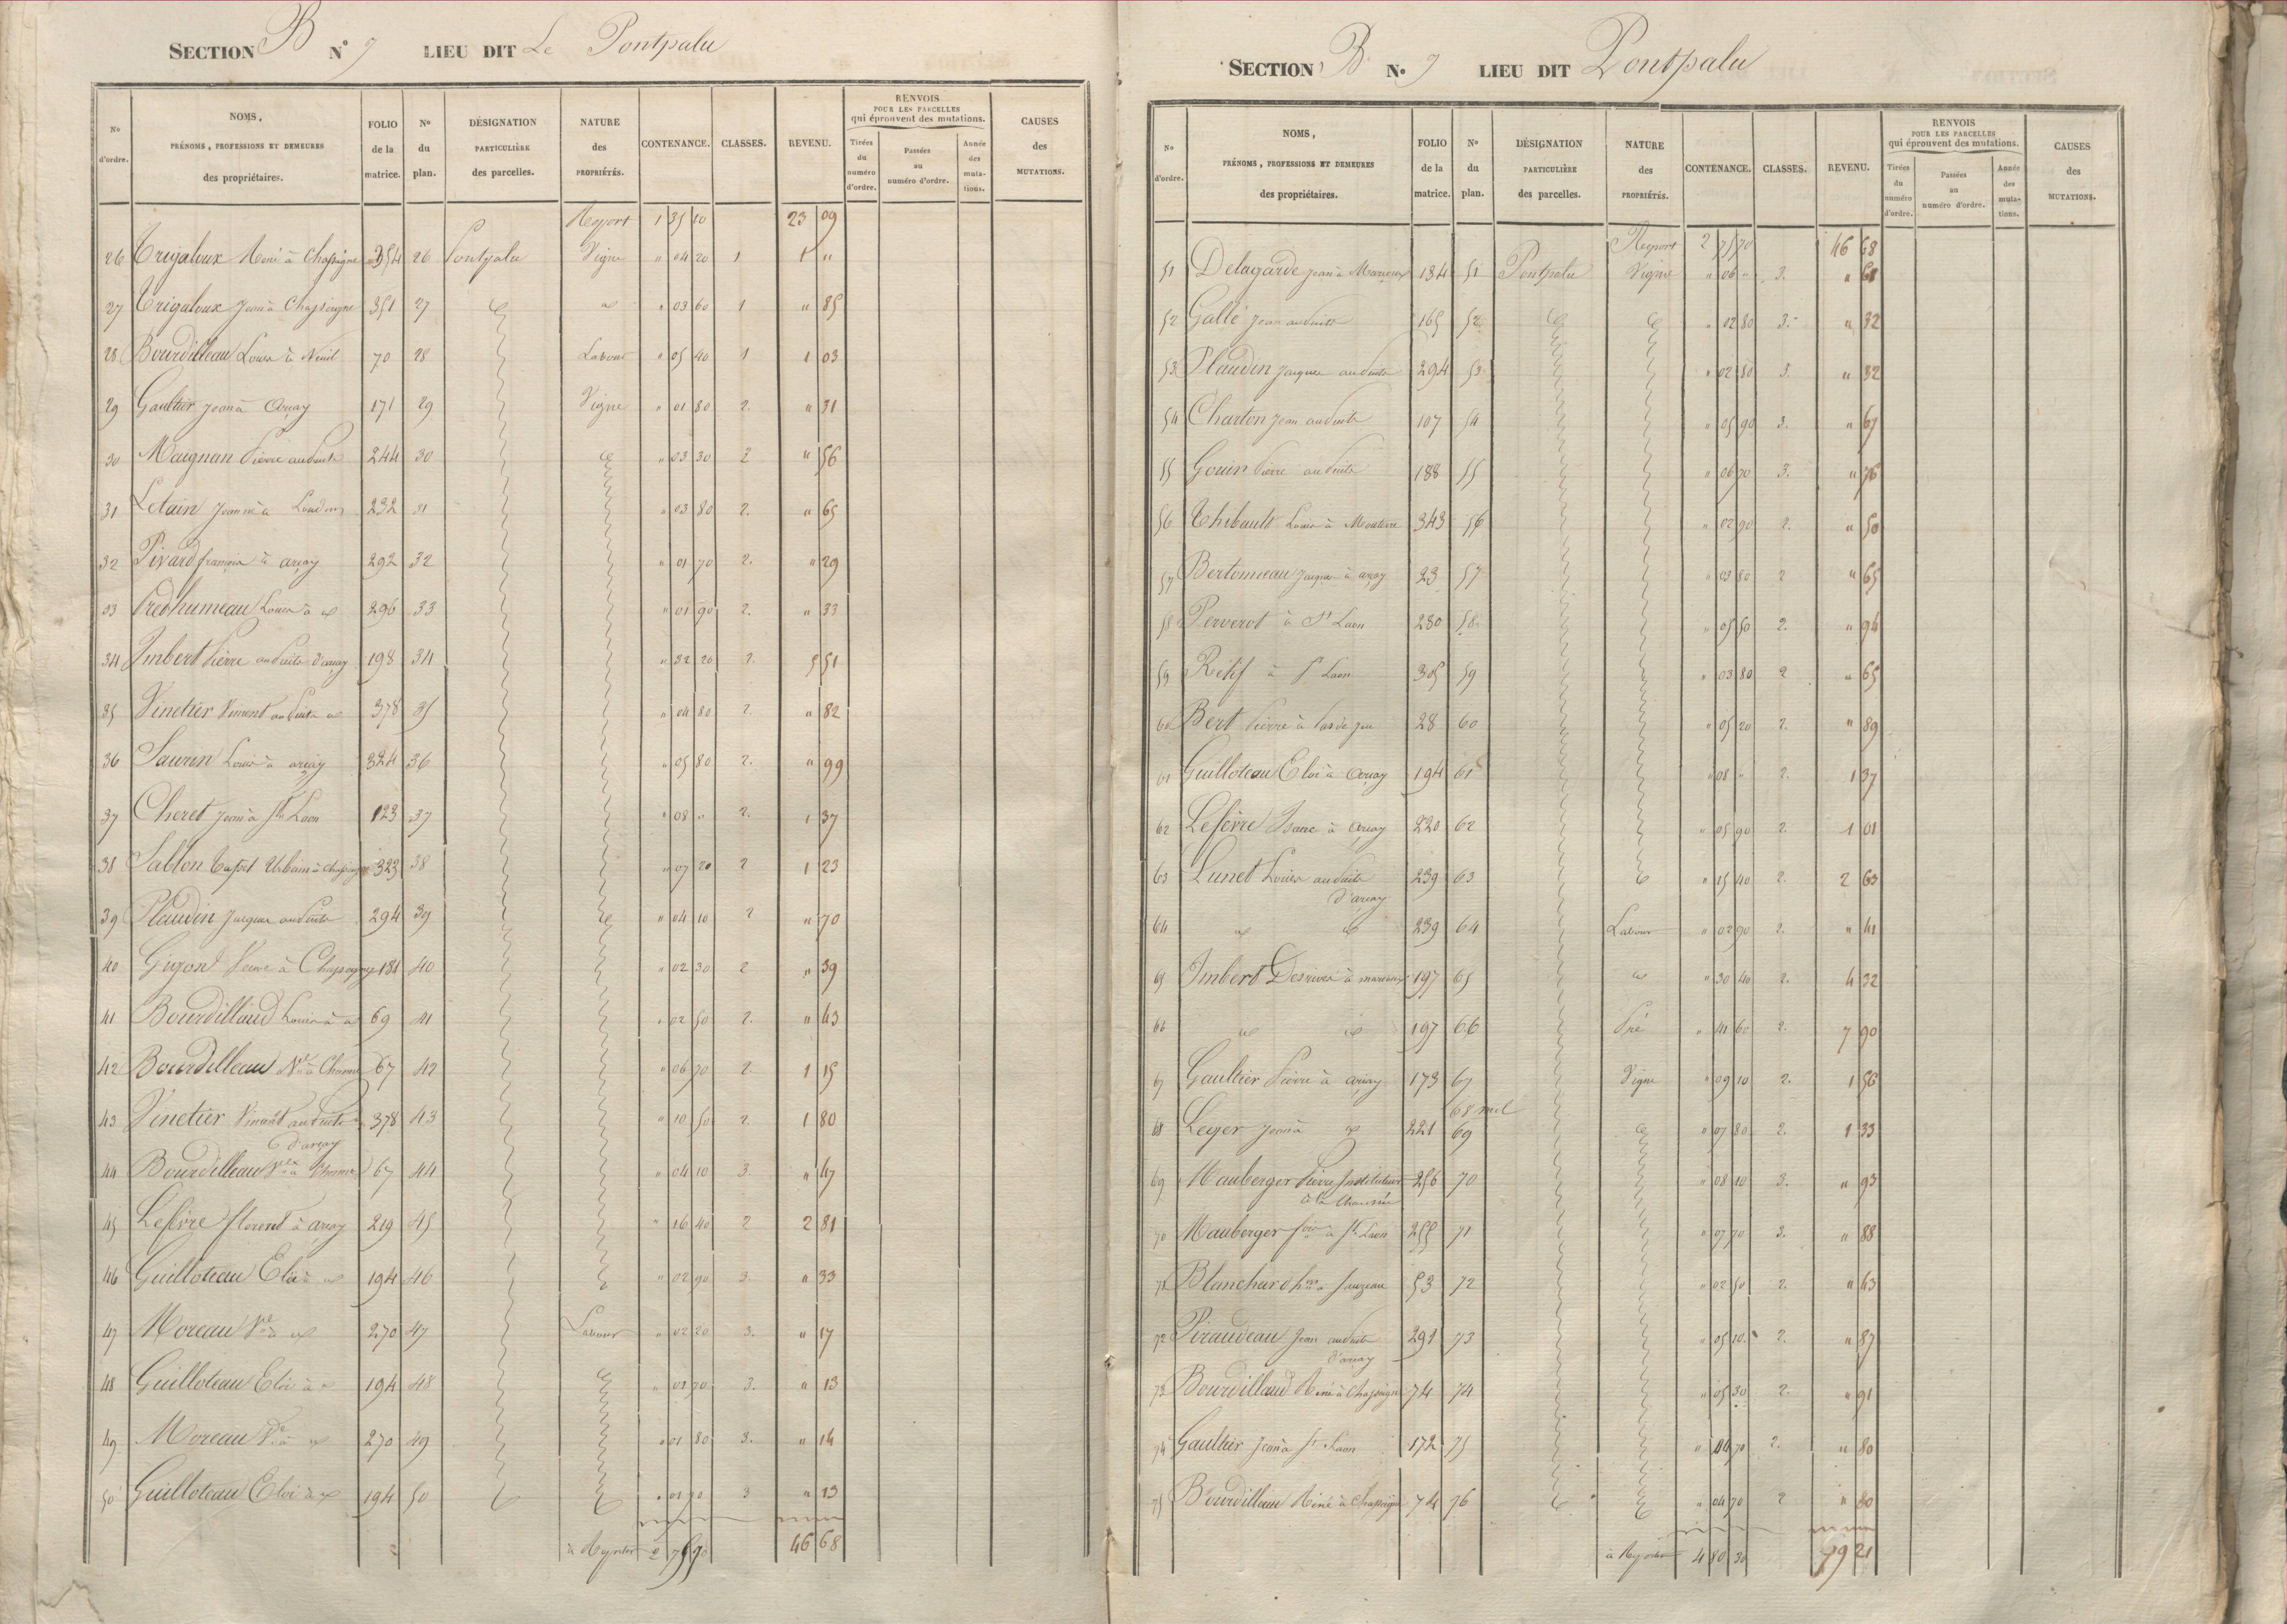 SECTION B N° 7 LIEU DIT Le Pontpalu
N° d'ordre. NOMS, PRÉNOMS, PROFESSIONS ET DEMEURES des propriétaires. FOLIO de la matrice. N° du plan. DÉSIGNATION PARTICULIÈRE des parcelles. NATURE des PROPRIÉTÉS. CONTENANCE. CLASSES. REVENU. RENVOIS POUR LES PARCELLES qui éprouvent des mutations. Tirées du numéro d'ordre. Passées au numéro d'ordre. Année des mutations. CAUSES des MUTATIONS.
Report 1 35 10 23 09
26 Trigaloux René à Chassigne 354 26 Pontpalu Vigne " 04 20 1 1 "
27 Trigaloux Jean à Chassigne 351 27 " 03 60 1 " 85
28 Bourdilleau Louis à Neuil 70 28 Labour " 05 40 1 1 03
29 Gaultier Jean à Arçay 171 29 Vigne " 01 80 2. " 31
30 Maignan Pierre au Puits 244 30 " 03 30 2 " 56
31 Letain à Loudun 232 31 " 03 80 2. " 65
32 Pivard françois à arçay 292 32 " 01 70 2. " 29
33 Predhumeau Louis à 296 33 " 01 90 2. " 33
34 Imbert Pierre au Puits d'arçay 198 34 " 32 20 2. 5 51
35 Vinetier Vincent au Puits 378 35 " 04 80 2. " 82
36 Saurin Louis à arçay 324 36 " 05 80 2. " 99
37 Cheret Jean à St Laon 123 37 " 08 " 2. 1 37
38 Sablon Urbain à 323 38 " 07 20 2 1 23
39 Plaudin Jacques au Puits 294 39 " 04 10 2 " 70
40 Guyon Veuve à 181 40 " 02 30 2 " 39
41 Bourdillaud Louis à 69 41 " 02 50 2. " 43
42 Bourdilleau Ve à 67 42 " 06 70 2 1 15
43 Vinetier Vincent au Puits 378 43 " 10 50 2. 1 80
d'arçay
44 Bourdilleau Ve à 67 44 " 04 10 3. " 47
45 Lefèvre florent à arçay 219 45 " 16 40 2 2 81
46 Guilloteau Eloi à 194 46 " 02 90 3. " 33
47 Moreau Ve à 270 47 Labour " 02 20 3. " 17
48 Guilloteau Eloi à 194 48 " 01 70 3. " 13
49 Moreau Ve à 270 49 " 01 80 3. " 14
50 Guilloteau Eloi à 194 50 " 01 70 3 " 13
à Reporter 2 75 70 46 68
SECTION B N° 7 LIEU DIT Pontpalu
N° d'ordre. NOMS, PRÉNOMS, PROFESSIONS ET DEMEURES des propriétaires. FOLIO de la matrice. N° du plan. DÉSIGNATION PARTICULIÈRE des parcelles. NATURE des PROPRIÉTÉS. CONTENANCE. CLASSES. REVENU. RENVOIS POUR LES PARCELLES qui éprouvent des mutations. Tirées du numéro d'ordre. Passées au numéro d'ordre. Année des mutations. CAUSES des MUTATIONS.
Report 2 75 70 46 68
51 Delagarde Jean à 184 51 Pontpalu Vigne " 06 " 3. " 68
52 Gallé Jean au Puits 165 52 " 02 80 3. " 32
53 Plaudin Jacques au Puits 294 53 " 02 80 3. " 32
54 Charton Jean au Puits 107 54 " 05 90 3. " 67
55 Gouin Pierre au Puits 188 55 " 06 70 3. " 76
56 Thibault Louis à Mouterre 343 56 " 02 90 2. " 50
57 Bertomeau Jacques à arçay 23 57 " 03 80 2 " 65
58 Perverot à St Laon 280 58 " 05 50 2. " 94
59 Retif à St Laon 305 59 " 03 80 2 " 65
60 Bert Pierre à Pas de jeu 28 60 " 05 20 2. " 89
61 Guilloteau Eloi à Arçay 194 61 " 08 " 2. 1 37
62 Lefèvre Isaac à Arçay 220 62 " 05 90 2. 1 01
63 Lunet Louis au Puits 239 63 " 15 40 2. 2 63
d'arçay
64 239 64 Labour " 02 90 2. " 41
65 Imbert Desrives à 197 65 " 30 40 2. 4 32
66 197 66 Pré " 41 60 2. 7 90
67 Gaultier Pierre à arçay 173 67 Vigne " 09 10 2. 1 56
68 nul
68 Leger Jean à 221 69 " 07 80 2. 1 33
69 Mauberger Pierre Instituteur 256 70 " 08 10 3. " 93
à la Chaussée
70 Mauberger fois à St Laon 255 71 " 07 70 3. " 88
71 Blanchard à 53 72 " 02 50 2. " 43
72 Piraudeau Jean au Puits 291 73 " 05 10 2. " 87
d'arçay
73 Bourdillaud René à Chassigne 74 74 " 05 30 2. " 91
74 Gaultier Jean à St Laon 172 75 " 04 70 2. " 80
75 Bourdilleau René à Chassigne 74 76 " 04 70 2 " 80
à Reporter 4 80 30 79 21